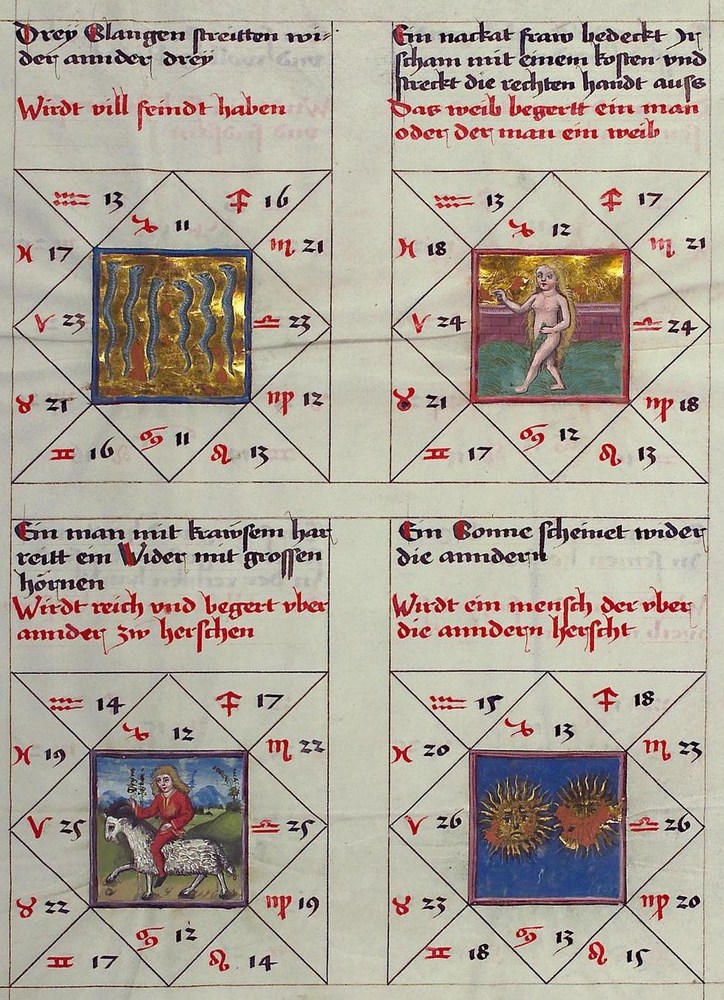 Drey Slangen streitten wi=
der annder drey
Wirdt vill feindt haben
♒ 13
♐ 16
♑ 11
♓ 17
♏ 21
♈ 23
♎ 23
♉ 21
♍ 12
♊ 16
♋ 11
♌ 13
Ein nackat fraw bedeckt Jr
scham mit einem kosten vnd
streckt die rechten handt auss
Das weib begertt ein man
oder der man ein weib
♒ 13
♐ 17
♑ 12
♓ 18
♏ 21
♈ 24
♎ 24
♉ 21
♍ 18
♊ 17
♋ 12
♌ 13
Ein man mit krawsem har
reitt ein Wider mit grossen
hörnen
Wirdt reich vnd begert vber
annder zw herschen
♒ 14
♐ 17
♑ 12
♓ 19
♏ 22
♈ 25
♎ 25
♉ 22
♍ 19
♊ 17
♋ 12
♌ 14
Ein Sonne scheinet wider
die anndern
Wirdt ein mensch der vber
die anndern herscht
♒ 15
♐ 18
♑ 13
♓ 20
♏ 23
♈ 26
♎ 26
♉ 23
♍ 20
♊ 18
♋ 13
♌ 15